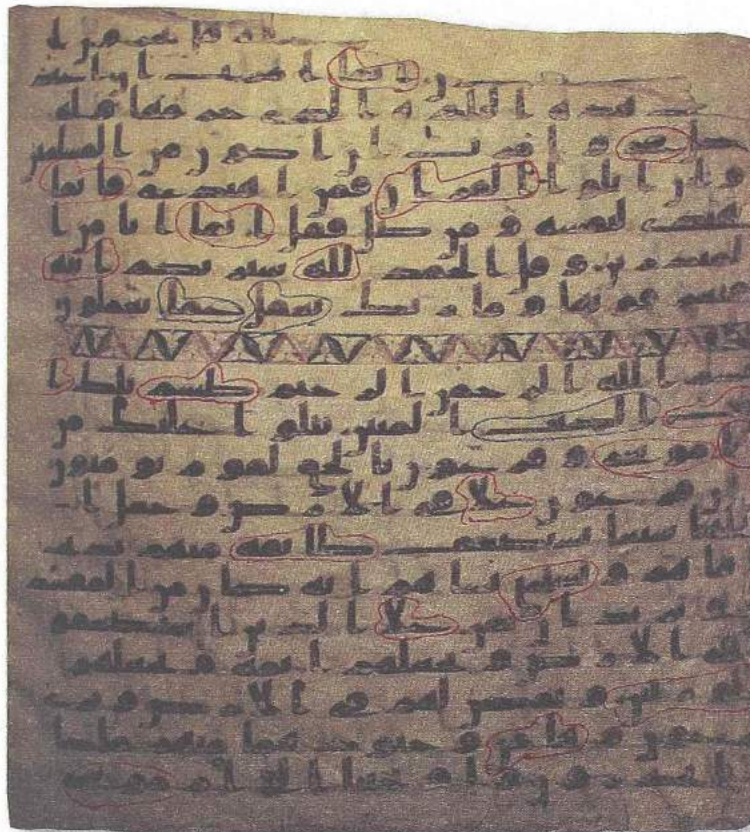 هل تجزون ا
انما امرت ان اعبد
رب هذه البلدة الذي حرمها وله
كل شي وامرت ان اكون من المسلمين
وان اتلوا القران فمن اهتدى فانما
يهتدي لنفسه ومن ضل فقل انما انا من ا
لمنذرين وقل الحمد لله سيريكم ايته
فتعرفونها وما ربك بغفل عما تعملون
بسم الله الرحمن الرحيم طسم تلك ا
يت الكتب المبين نتلوا عليك من
نبا موسى وفرعون بالحق لقوم يومنون
ان فرعون علا في الارض وجعل ا
هلها شيعا يستضعف طايفة منهم يذبح
ابناهم ويستحي نساهم انه كان من المفسد
ين ونريد ان نمن علا الذين استضعفوا
في الارض ونجعلهم ايمة ونجعلهم ا
لورثين ونمكن لهم في الارض ونري
فرعون وهامن وجنودهما منهم ما كا
نوا يحذرون واوحينا الى ام موسى